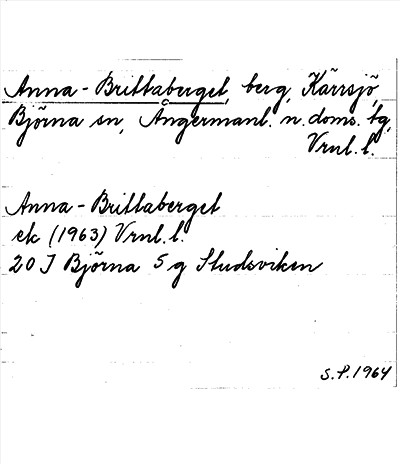 Anna-Brittaberget, berg, Kärrsjö,
Björna sn, Ångermanl. n. doms. tg,
Vrnl. l.
Anna-Brittaberget
ek (1963) Vrnl. l.
20 J Björna 5 g Studsviken
S.P. 1964